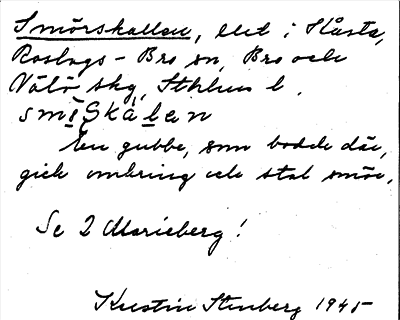 Smörskallen, elct i Håsta,
Roslags-Bro sn, Bro och
Vätö skg, Sthlms l.
smiskálen
En gubbe, som bodde där,
gick omkring och stal smör.
Se 2 Marieberg!
Kerstin Stenberg 1945